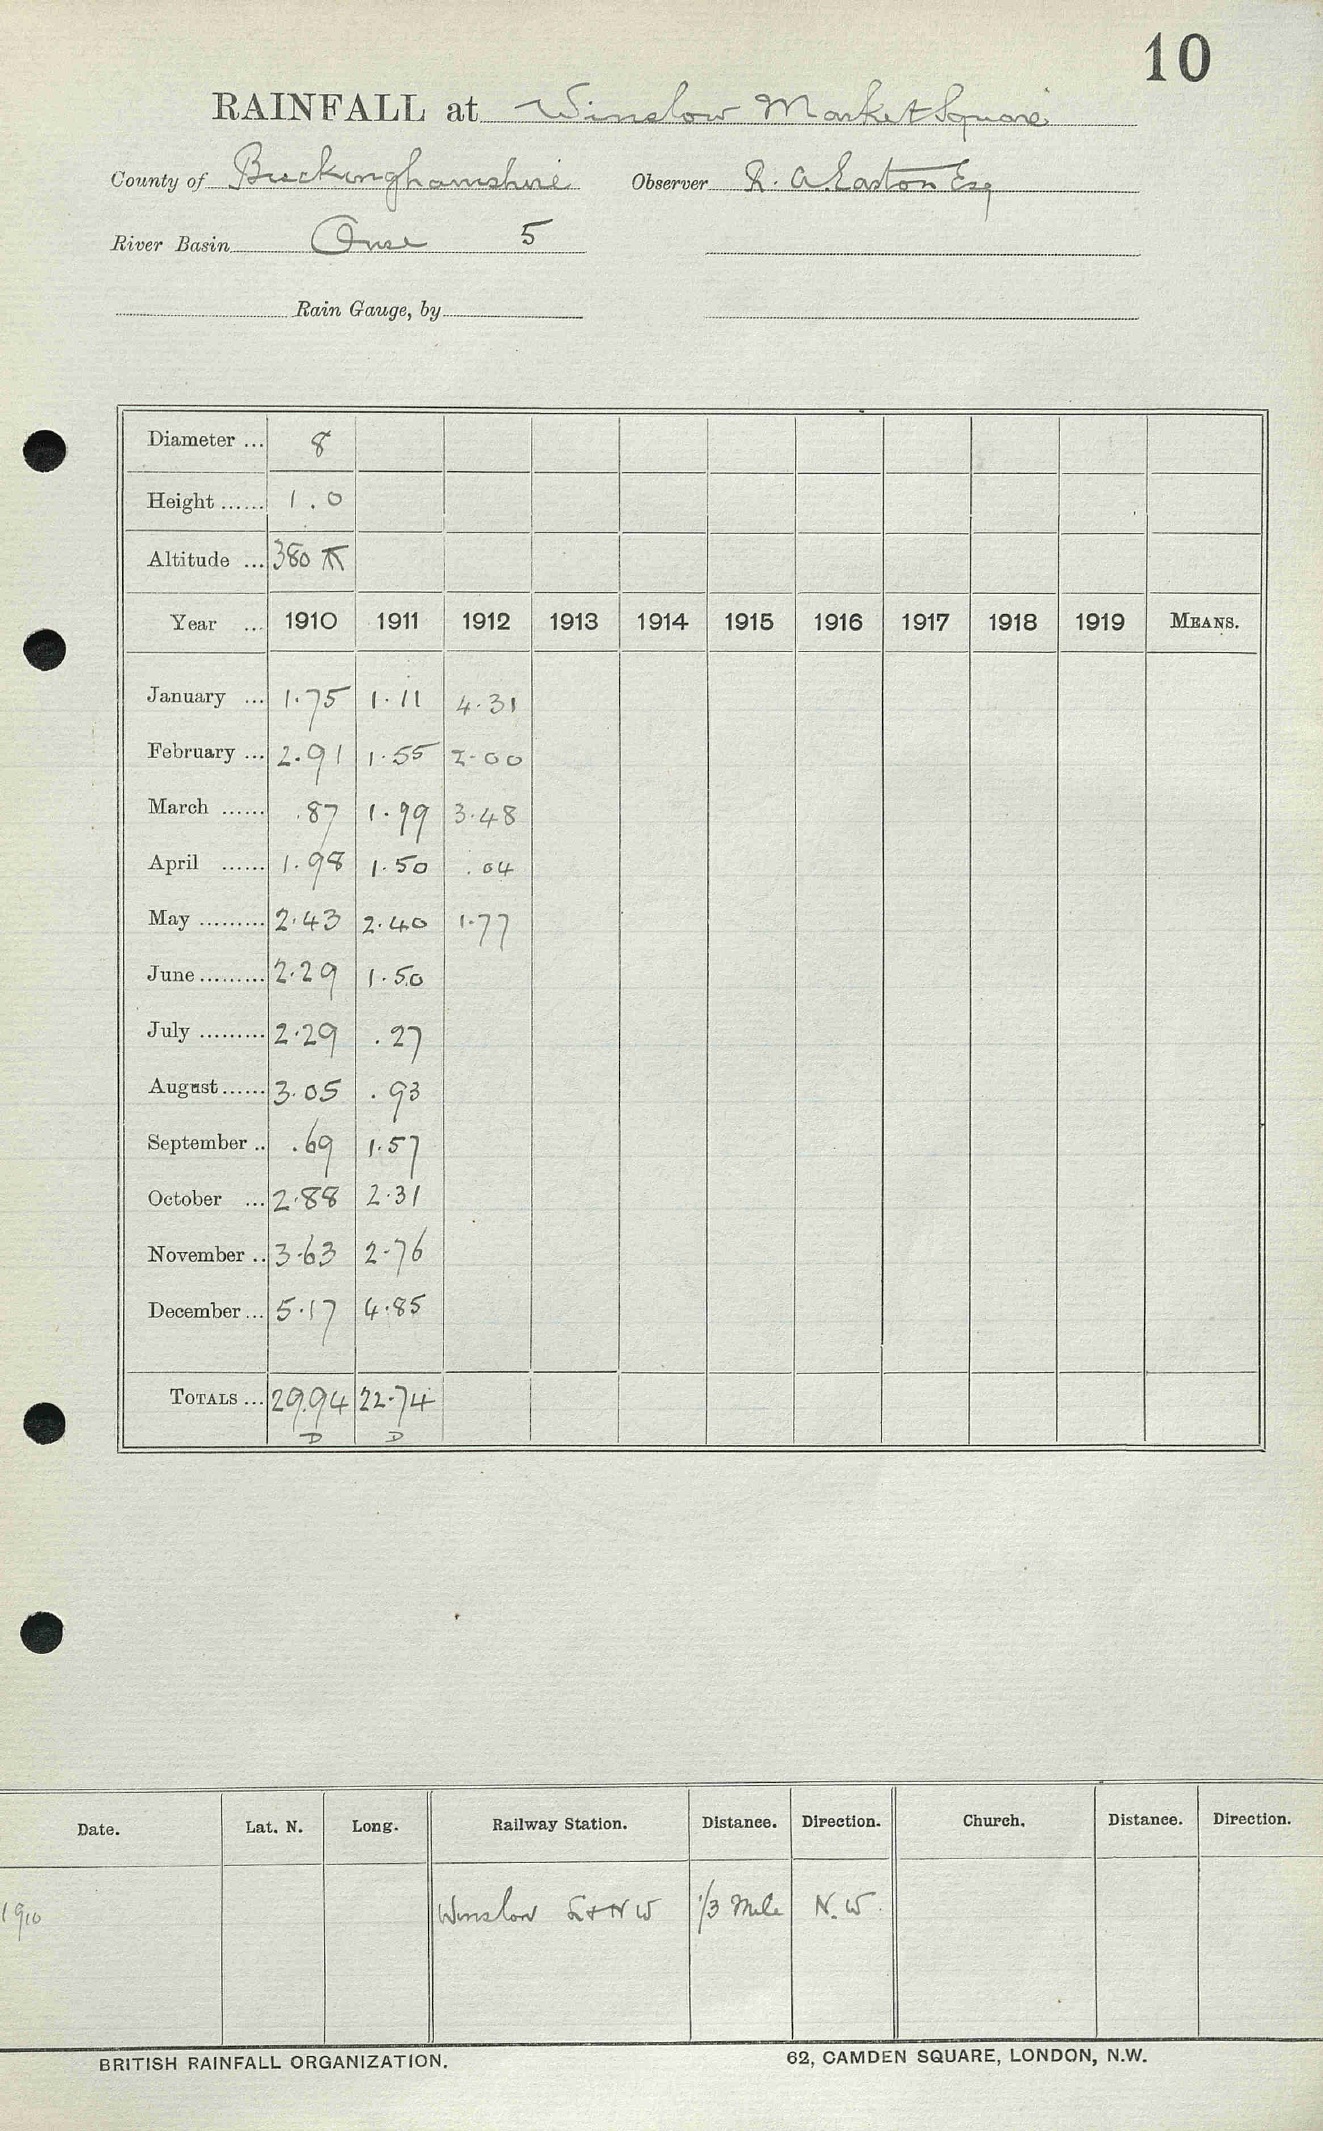 10
RAINFALL at Winslow Market Square
County of Buckinghamshire Observer R. A. Easton Esq
River Basin Ouse 5
Rain Gauge, by
Diameter ... 8
Height ...... 1.0
Altitude ... 380
Year ... 1910 1911 1912 1913 1914 1915 1916 1917 1918 1919 MEANS.
January ... 1.75 1.11 4.31
February ... 2.91 1.55 2.00
March ...... .87 1.99 3.48
April ...... 1.98 1.50 .04
May ......... 2.43 2.40 1.77
June ......... 2.29 1.50
July ......... 2.29 .27
August ...... 3.05 .93
September .. .69 1.57
October ... 2.88 2.31
November .. 3.63 2.76
December ... 5.17 4.85
TOTALS ... 29.94 22.74
D D
Date. Lat. N. Long. Railway Station. Distance. Direction. Church. Distance. Direction.
1910 Winslow L+NW 1/3 Mile N.W.
BRITISH RAINFALL ORGANIZATION. 62, CAMDEN SQUARE, LONDON, N.W.